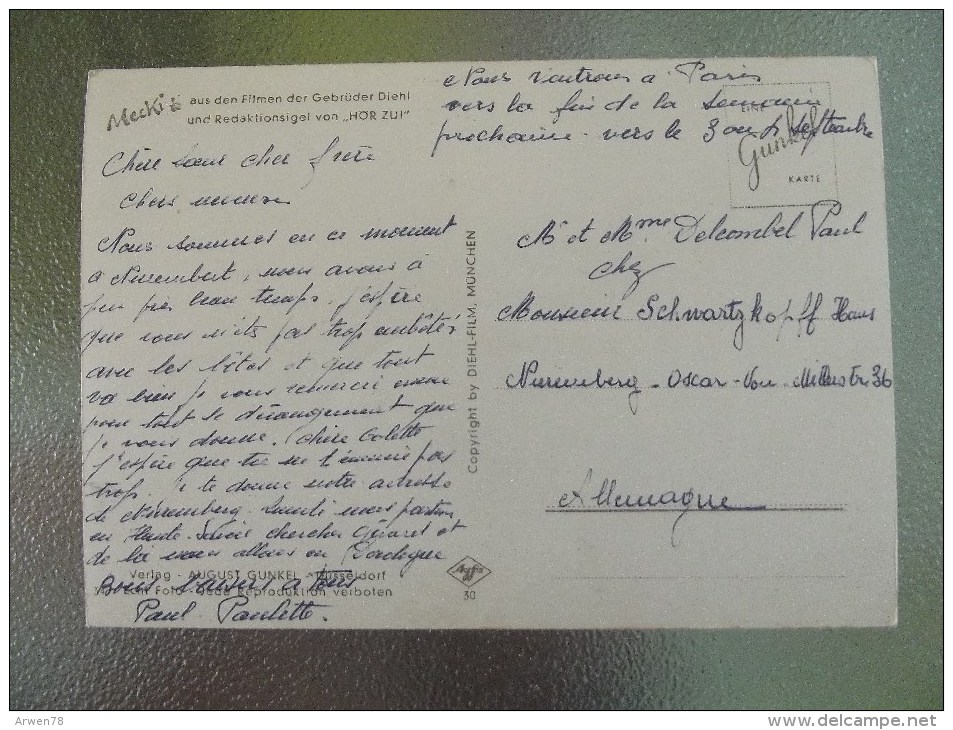 Mecki
aus den Filmen der Gebrüder Diehl
und Redaktionsigel von „HÖR ZU!"
Nous rentrons à Paris
vers la fin de la semaine
prochaine - vers le 3 ou 4 septembre
EINE
Gunkel
KARTE
Chère Sœur cher frère
Chers neveux
Nous sommes en ce moment
à Nuremberg, nous avons à
peu près beau temps. j'espère
que vous n'êtes pas trop embêtés
avec les bêtes et que tout
va bien je vous remercie encore
pour tout le dérangement que
je vous donne. Chère Colette
j'espère que tu ne t'ennuie pas
trop. je te donne notre adresse
de Nuremberg. Lundi nous partons
en Haute-Savoie chercher Gérard et
de là nous allons en Dordogne
Bons baisers à tous
Paul. Paulette.
Verlag - AUGUST GUNKEL - Düsseldorf
Echt Foto Jede Reproduktion verboten
Copyright by DIEHL-FILM, MÜNCHEN
Agfa
30
Mr et Mme Delcombel Paul
chez
Monsieur Schwartzkopff Hans
Nuremberg - Oscar-Von-Millerstr 36
Allemagne
Arwen78
www.delcampe.net